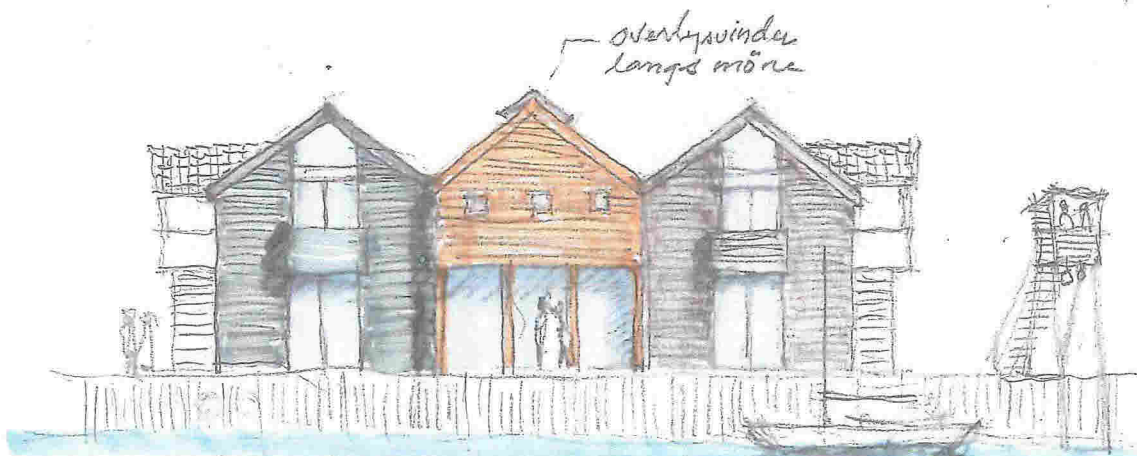 overlysvindu
langs møne